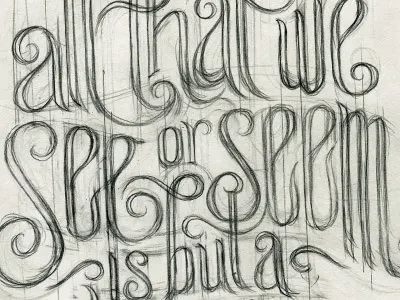 all that we
See or Seem
is but a